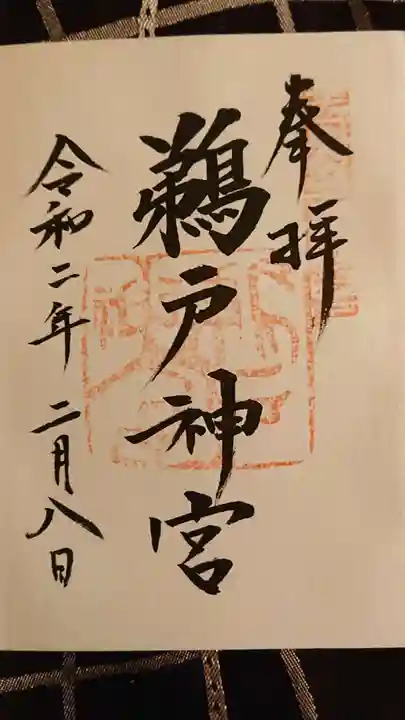 奉拝
鵜戸神宮
令和二年二月八日